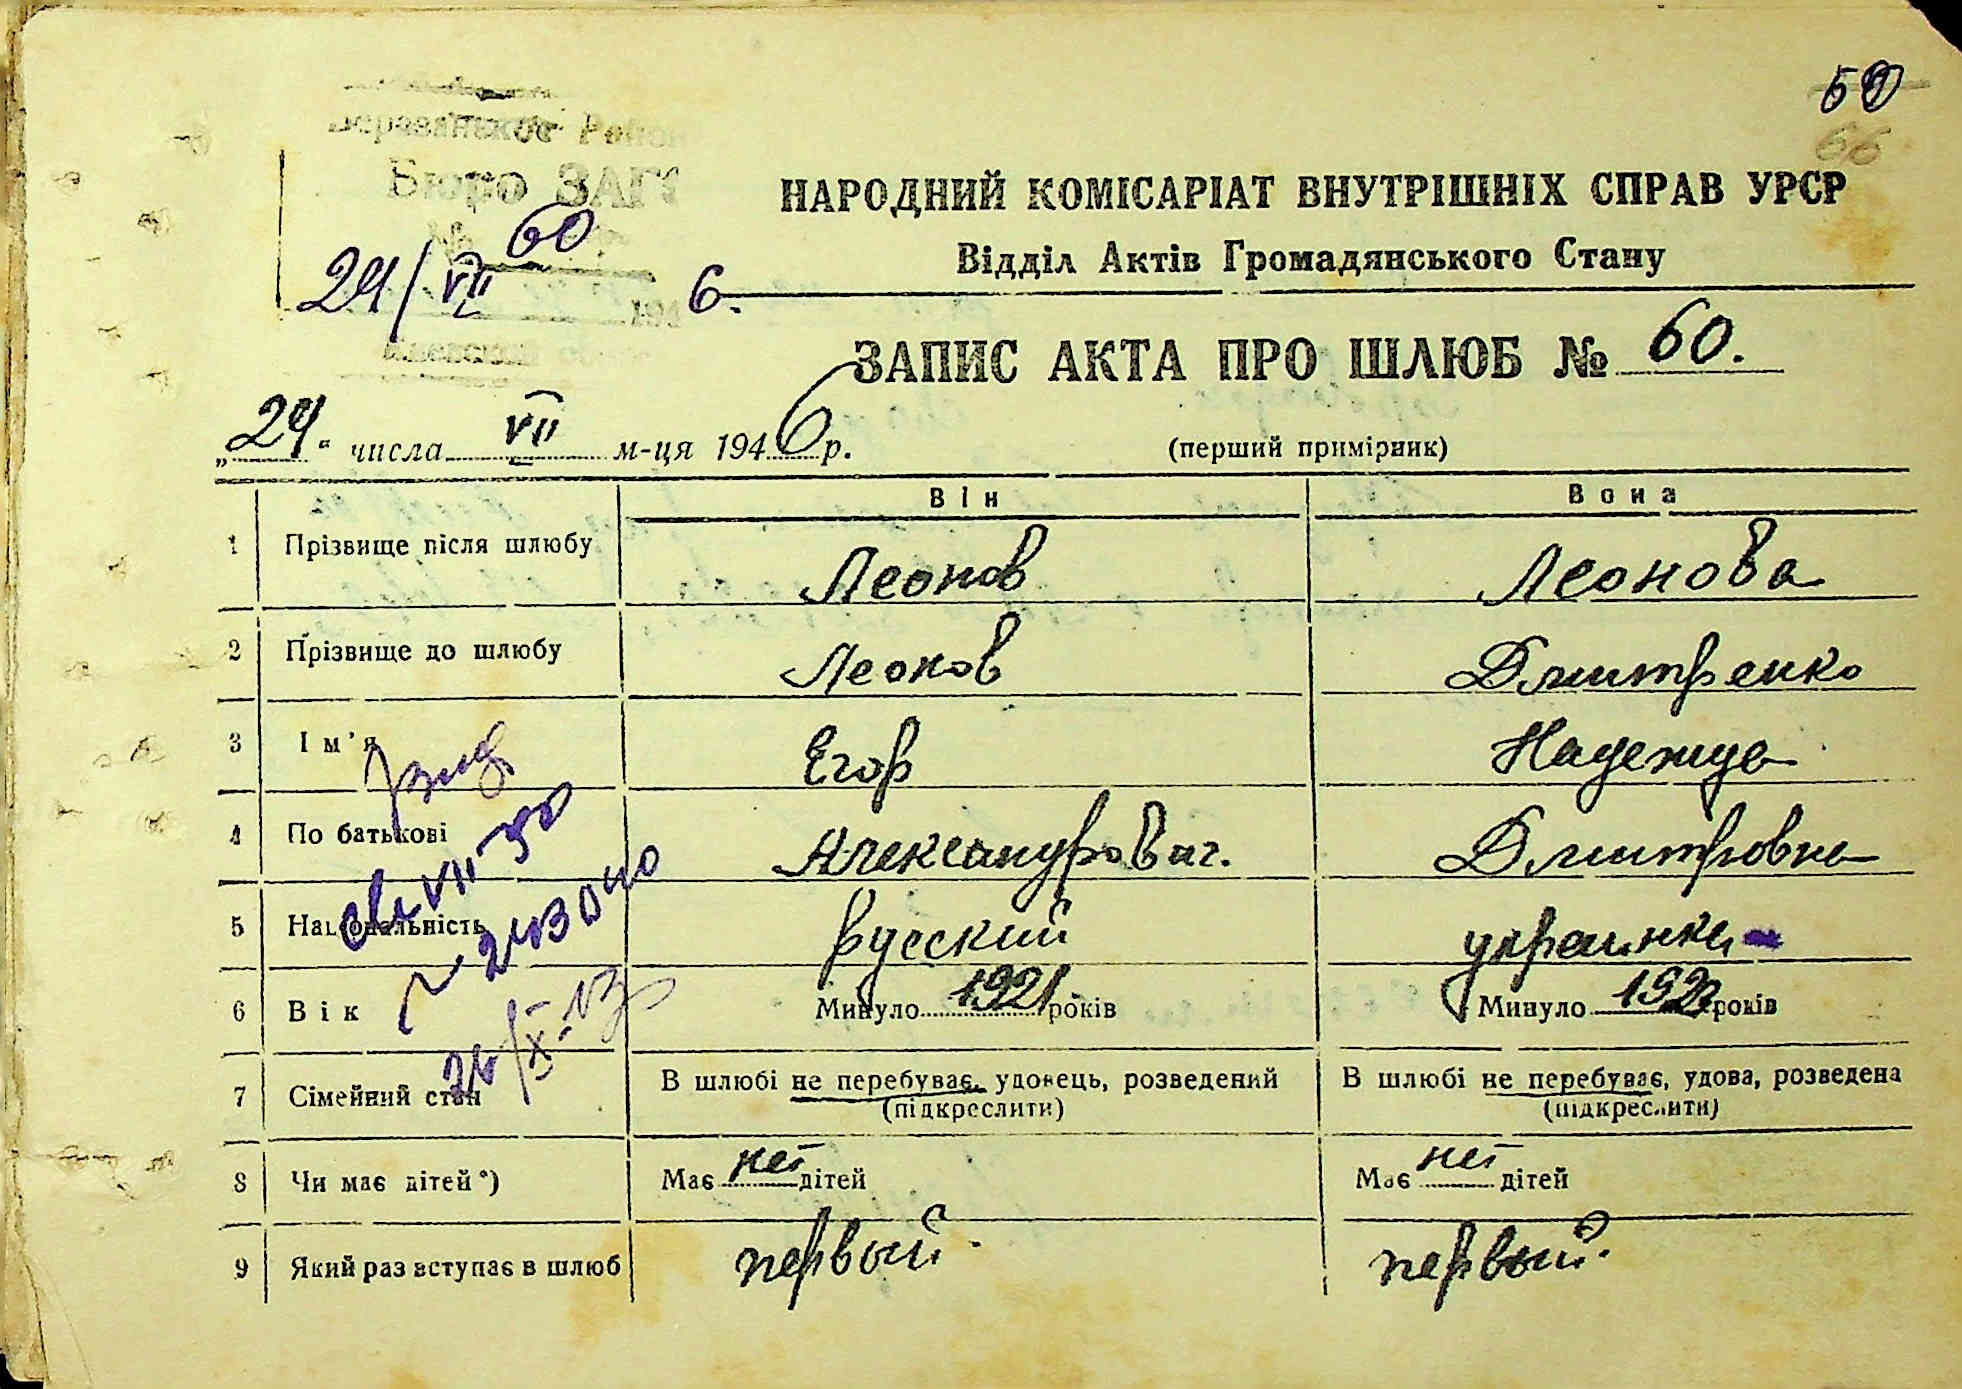 59
66
Бюро ЗАГС
60
24/VII 6.
НАРОДНИЙ КОМІСАРІАТ ВНУТРІШНІХ СПРАВ УРСР
Відділ Актів Громадянського Стану
ЗАПИС АКТА ПРО ШЛЮБ № 60.
„24“ числа VII м-ця 1946 р.
(перший примірник)
Він Вона
1 Прізвище після шлюбу Леонов Леонова
2 Прізвище до шлюбу Леонов Дмитренко
3 Ім'я Егор Надежда
4 По батькові Александрович. Дмитровна
5 Національність русский украинка
6 Вік Минуло 1921 років Минуло років
7 Сімейний стан В шлюбі не перебуває, удовець, розведений В шлюбі не перебуває, удова, розведена
(підкреслити) (підкреслити)
8 Чи має дітей*) Має нет дітей Має нет дітей
9 Який раз вступає в шлюб первый. первый.